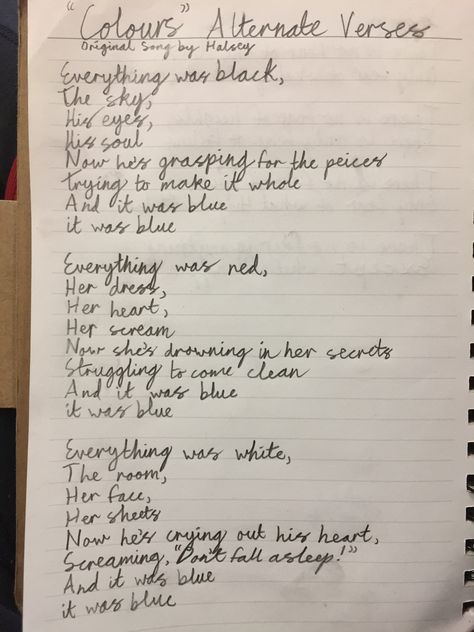 "Colours" Alternate Verses
Original Song by Halsey
Everything was black,
The sky,
His eyes,
His soul
Now he's grasping for the peices
trying to make it whole
And it was blue
it was blue
Everything was red,
Her dress,
Her heart,
Her scream
Now she's drowning in her secrets
Struggling to come clean
And it was blue
it was blue
Everything was white,
The room,
Her face,
Her sheets
Now he's crying out his heart,
Screaming, "Don't fall asleep!"
And it was blue
it was blue